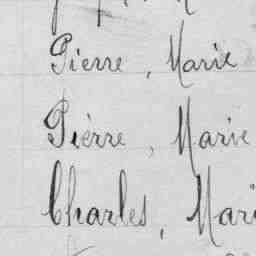 Pierre, Marie
Pièrre, Marie
Charles, Mari